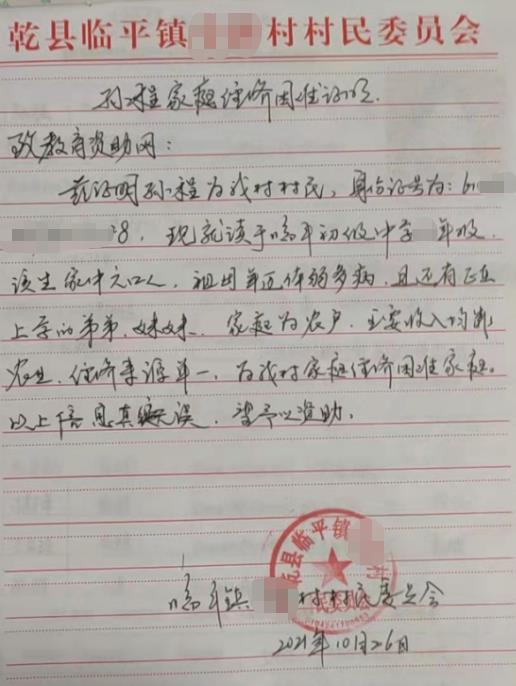 乾县临平镇 村村民委员会
孙程家庭经济困难证明
致教育资助网:
兹证明孙程为我村村民,身份证号为:6
8,现就读于临平初级中学 年级,
该生家中六口人,祖母年迈体弱多病,且还有正在
上学的弟弟、妹妹、家庭为农户,主要收入均靠
农业,经济来源单一,为我村家庭经济困难家庭。
以上信息真实无误,望予以资助。
乾县临平镇
临平镇 村村民委员会
2021年10月26日